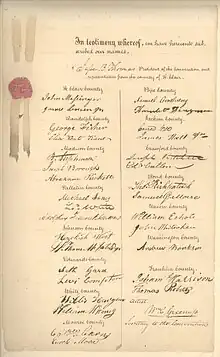 In testimony whereof, we have hereunto subscribed our names.
President of the convention and
representative from the county of St Clair.
St Clair county
John Messinger
James Lemen Jr
Randolph county
George Fisher
Elias Kent Kane
Madison county
B. Stephenson
Joseph Borough
Abraham Prickett
Gallatin county
Michael Jones
Johnson county
Hezekiah West
Wm McFatridge
Edwards county
Seth Gard
Levi Compton
White county
Willis Hargrave
William McHenry
Monroe county
Caldwell Cairns
Enoch Moore
Pope county
Samuel Omelveny
Hamlet Ferguson
Jackson county
James Hall Jr
Crawford county
Joseph Kitchell
Bond county
Thos Kirkpatrick
Samuel G. Morse
Union county
William Echols
John Whiteaker
Washington county
Andrew Bankson
Franklin county
Isham Harrison
Thomas Roberts
attest
Secretary to the Convention